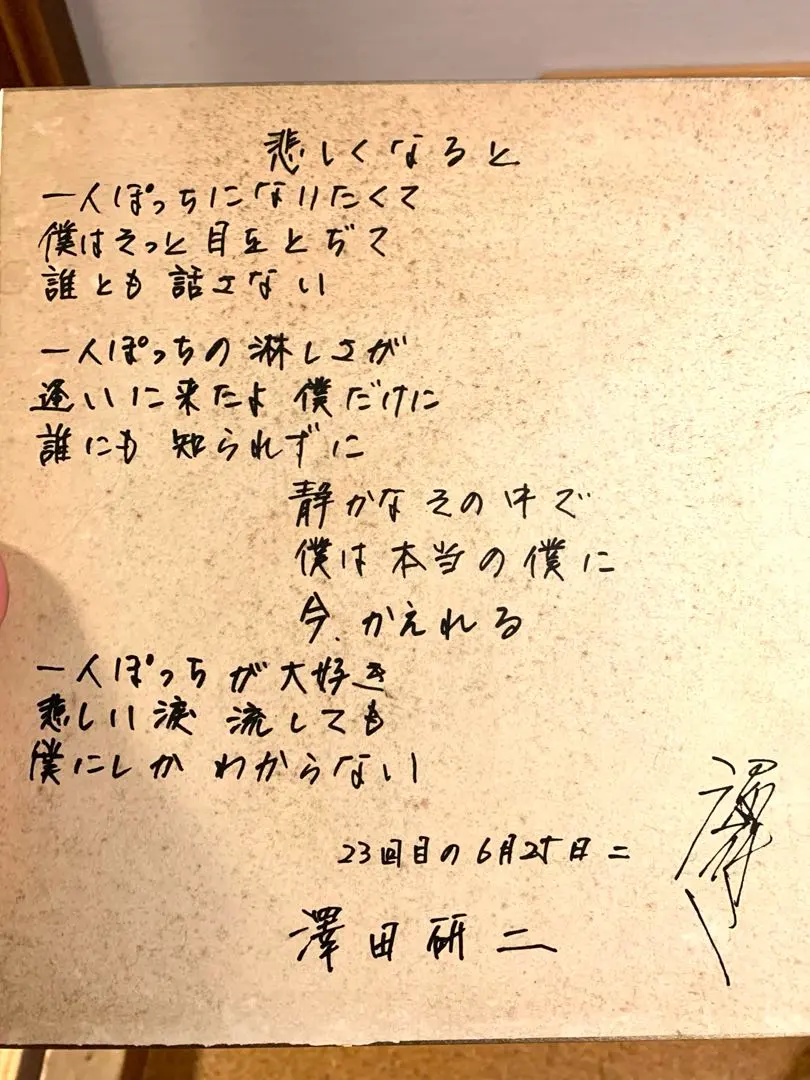 悲しくなると
一人ぽっちになりたくて
僕はそっと目をとぢて
誰とも話さない
一人ぽっちの淋しさが
逢いに来たよ 僕だけに
誰にも 知られずに
静かなその中で
僕は本当の僕に
今、かえれる
一人ぽっちが大好き
悲しい涙 流しても
僕にしか わからない
23回目の6月25日ニ
澤田研二